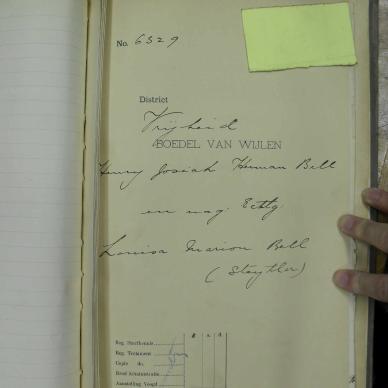 No. 6329
District
Vrijheid
BOEDEL VAN WIJLEN
Henry Josiah Herman Bell
en nag. Echtg.
Louisa Marion Bell
(Steytler)
Reg. Sterfkennis
Reg. Testament
Copie do.
Eerste Administratie
Aanstelling Voogd